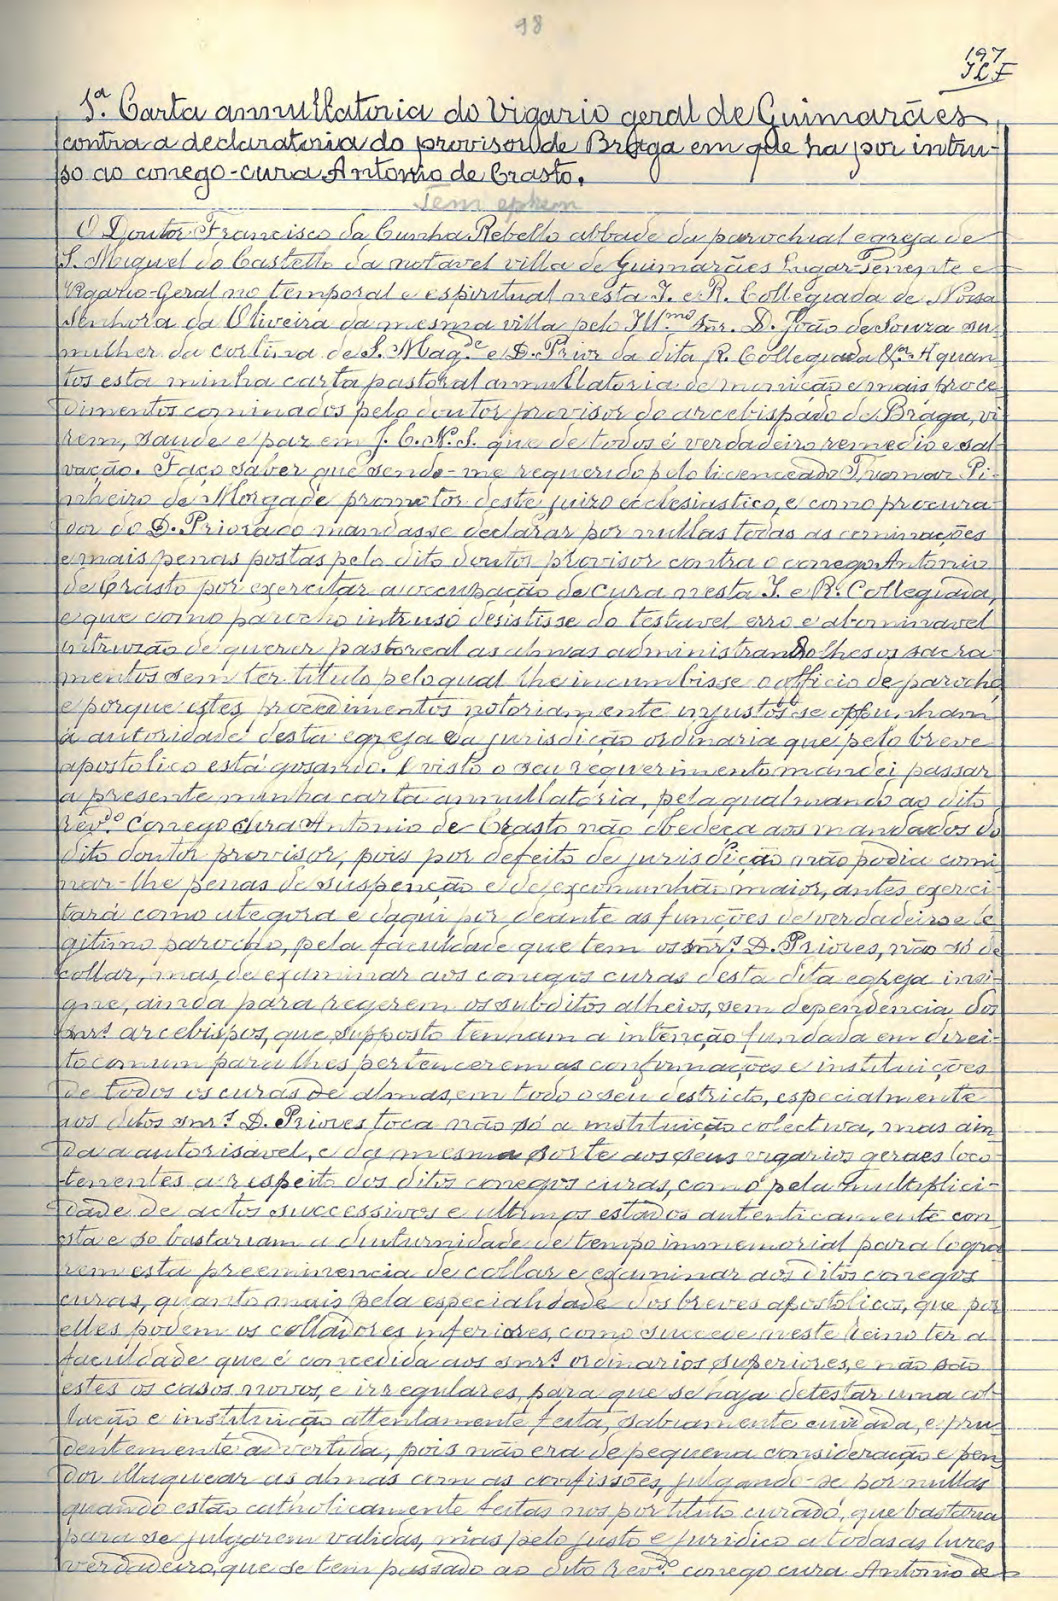 98
197
JLF
1ª. Carta annullatoria do Vigario geral de Guimarães,
contra a declaratoria do provisor de Braga em que ha por intru-
so ao conego-cura Antonio de Crasto.
Tem
O Doutor Francisco da Cunha Rebello abbade da parochial egreja de
S. Miguel do Castello da notavel villa de Guimarães Lugar-Tenente e
Vigario-Geral no temporal e espiritual nesta I. e R. Collegiada de Nossa
Senhora da Oliveira da mesma villa pelo Ill.mo Snr. D. João de Souza su-
mulher da cortina de S. Mag.de e D. Prior da dita R. Collegiada &.ª A quan-
tos esta minha carta pastoral annullatoria de monição e mais proce-
dimentos cominados pelo doutor provisor do arcebispado de Braga, vi-
rem, saude e paz em J. C. N. S. que de todos é verdadeiro remedio e sal-
vação. Faço saber que sendo-me requerido pelo licenceado Thomaz Pi-
nheiro de Morgade promotor deste juizo ecclesiastico, e como procura-
dor do D. Priorado mandasse declarar por nullas todas as cominações
e mais penas postas pelo dito doutor provisor contra o conego Antonio
de Crasto por exercitar a occupação de cura nesta I. e R. Collegiada,
e que como parocho intruso desistisse do testavel erro e abominavel
intruzão de querer pastoreal as almas administrando-lhes os sacra-
mentos sem ter titulo pelo qual lhe incumbisse o officio de parocho,
e porque estes procedimentos notoriamente injustos se oppunham
á autoridade desta egreja e a jurisdicção ordinaria que pelo breve
apostolico está gosando. E visto o seu requerimento mandei passar
a presente minha carta annullatoria, pela qual mando ao dito
rev.do conego cura Antonio de Crasto não obedeça aos mandados do
dito doutor provisor, pois por defeito de jurisdicção não podia comi-
nar-lhe penas de suspenção e de excomunhão maior, antes exerci-
tará como ategora e daqui por deante as funções de verdadeiro e le-
gitimo parocho, pela faculdade que tem os snr.s D. Priores, não só de
collar, mas de examinar aos conegos curas desta dita egreja insi-
gne, ainda para regerem os subditos alheios, sem dependencia dos
snr.s arcebispos, que supposto tenham a intenção fundada em direi-
to comum para lhes pertencerem as confirmações e instituições
de todos os curas de almas, em todo o seu destricto, especialmente
aos ditos snr.s D. Priores toca não só a instituição colectiva, mas ain-
da a autorisavel, e da mesma sorte aos seus vigarios geraes loco-
tenentes a respeito dos ditos conegos curas, como pela multiplici-
dade de actos successivos e ultimos estados autenticamente con-
sta e so bastariam a diuturnidade de tempo immemorial para logra-
rem esta preeminencia de collar e examinar aos ditos conegos
curas, quanto mais pela especialidade dos breves apostolicos, que por
elles podem os colladores inferiores, como succede neste reino ter a
faculdade que é concedida aos snr.s ordinarios superiores, e não são
estes os casos novos, e irregulares, para que se haja detestar uma col-
lação e instituição attentamente feita, sabiamente cuidada, e pru-
dentemente advertida, pois não era de pequena consideração e pen-
dor illaquear as almas com as confissões, julgando-se por nullas
quando estão catholicamente feitas nos por titulo curado, que bastaria
para se julgarem validas, mas pelo justo e juridico a todas as luzes
verdadeiro, que se tem passado ao dito Rev.do conego cura Antonio de